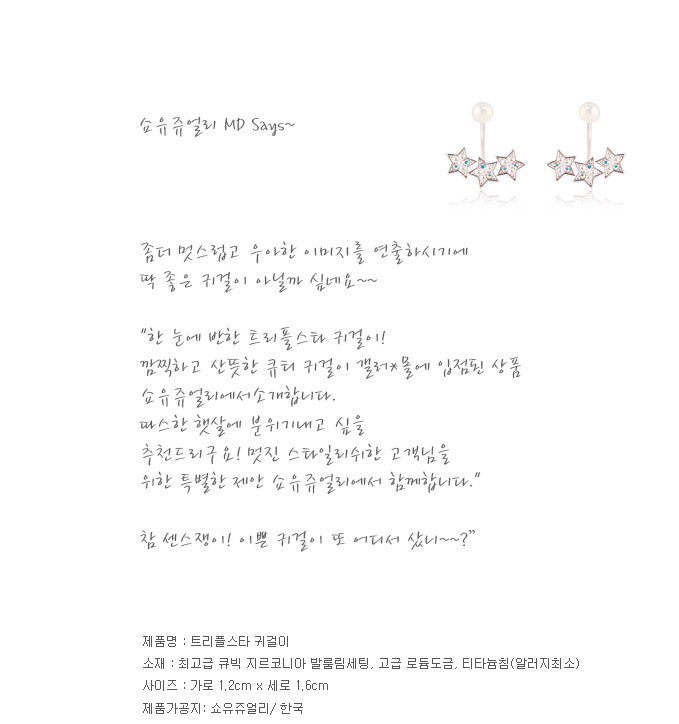 쇼유쥬얼리 MD Says~
좀더 멋스럽고 우아한 이미지를 연출하시기에
딱 좋은 귀걸이 아닐까 싶네요~~
"한 눈에 반한 트리플스타 귀걸이!
깜찍하고 산뜻한 큐티 귀걸이 갤러*몰에 입점된 상품
쇼유쥬얼리에서소개합니다.
따스한 햇살에 분위기내고 싶을
추천드리구요! 멋진 스타일리쉬한 고객님을
위한 특별한 제안 쇼유쥬얼리에서 함께합니다."
참 센스쟁이! 이쁜 귀걸이 또 어디서 샀니~~?"
제품명 : 트리플스타 귀걸이
소재 : 최고급 큐빅 지르코니아 발룸림세팅, 고급 로듐도금, 티타늄침(알러지최소)
사이즈 : 가로 1.2cm x 세로 1.6cm
제품가공지: 쇼유쥬얼리/ 한국